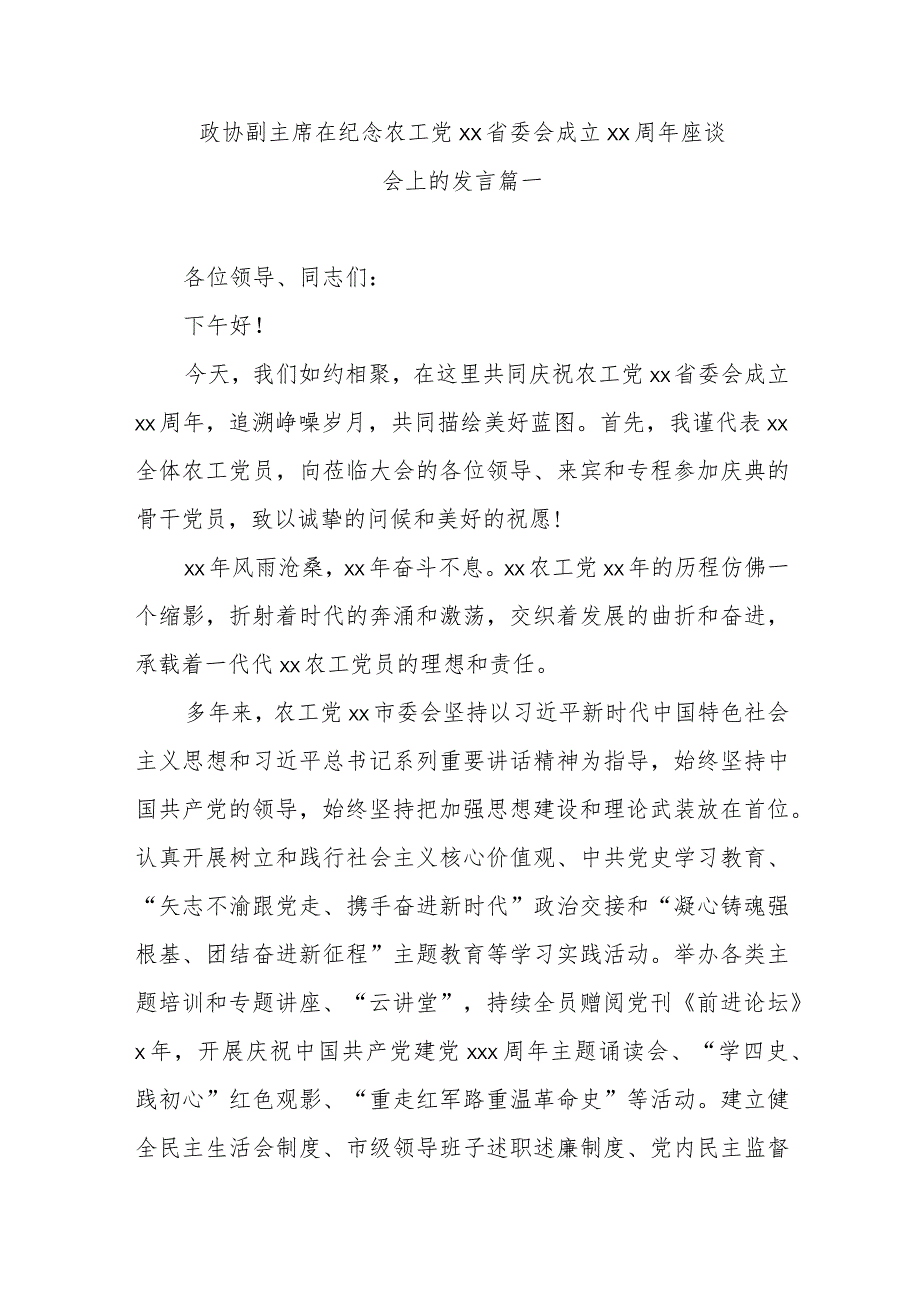 政协副主席在纪念农工党 xx 省委会成立 xx 周年座谈
会上的发言篇一
各位领导、同志们：
下午好！
今天，我们如约相聚，在这里共同庆祝农工党 xx 省委会成立
xx 周年，追溯峥噪岁月，共同描绘美好蓝图。首先，我谨代表 xx
全体农工党员，向莅临大会的各位领导、来宾和专程参加庆典的
骨干党员，致以诚挚的问候和美好的祝愿!
xx 年风雨沧桑，xx 年奋斗不息。xx 农工党 xx 年的历程仿佛一
个缩影，折射着时代的奔涌和激荡，交织着发展的曲折和奋进，
承载着一代代 xx 农工党员的理想和责任。
多年来，农工党 xx 市委会坚持以习近平新时代中国特色社会
主义思想和习近平总书记系列重要讲话精神为指导，始终坚持中
国共产党的领导，始终坚持把加强思想建设和理论武装放在首位。
认真开展树立和践行社会主义核心价值观、中共党史学习教育、
“矢志不渝跟党走、携手奋进新时代”政治交接和“凝心铸魂强
根基、团结奋进新征程”主题教育等学习实践活动。举办各类主
题培训和专题讲座、“云讲堂”，持续全员赠阅党刊《前进论坛》
x 年，开展庆祝中国共产党建党 xxx 周年主题诵读会、“学四史、
践初心”红色观影、“重走红军路重温革命史”等活动。建立健
全民主生活会制度、市级领导班子述职述廉制度、党内民主监督